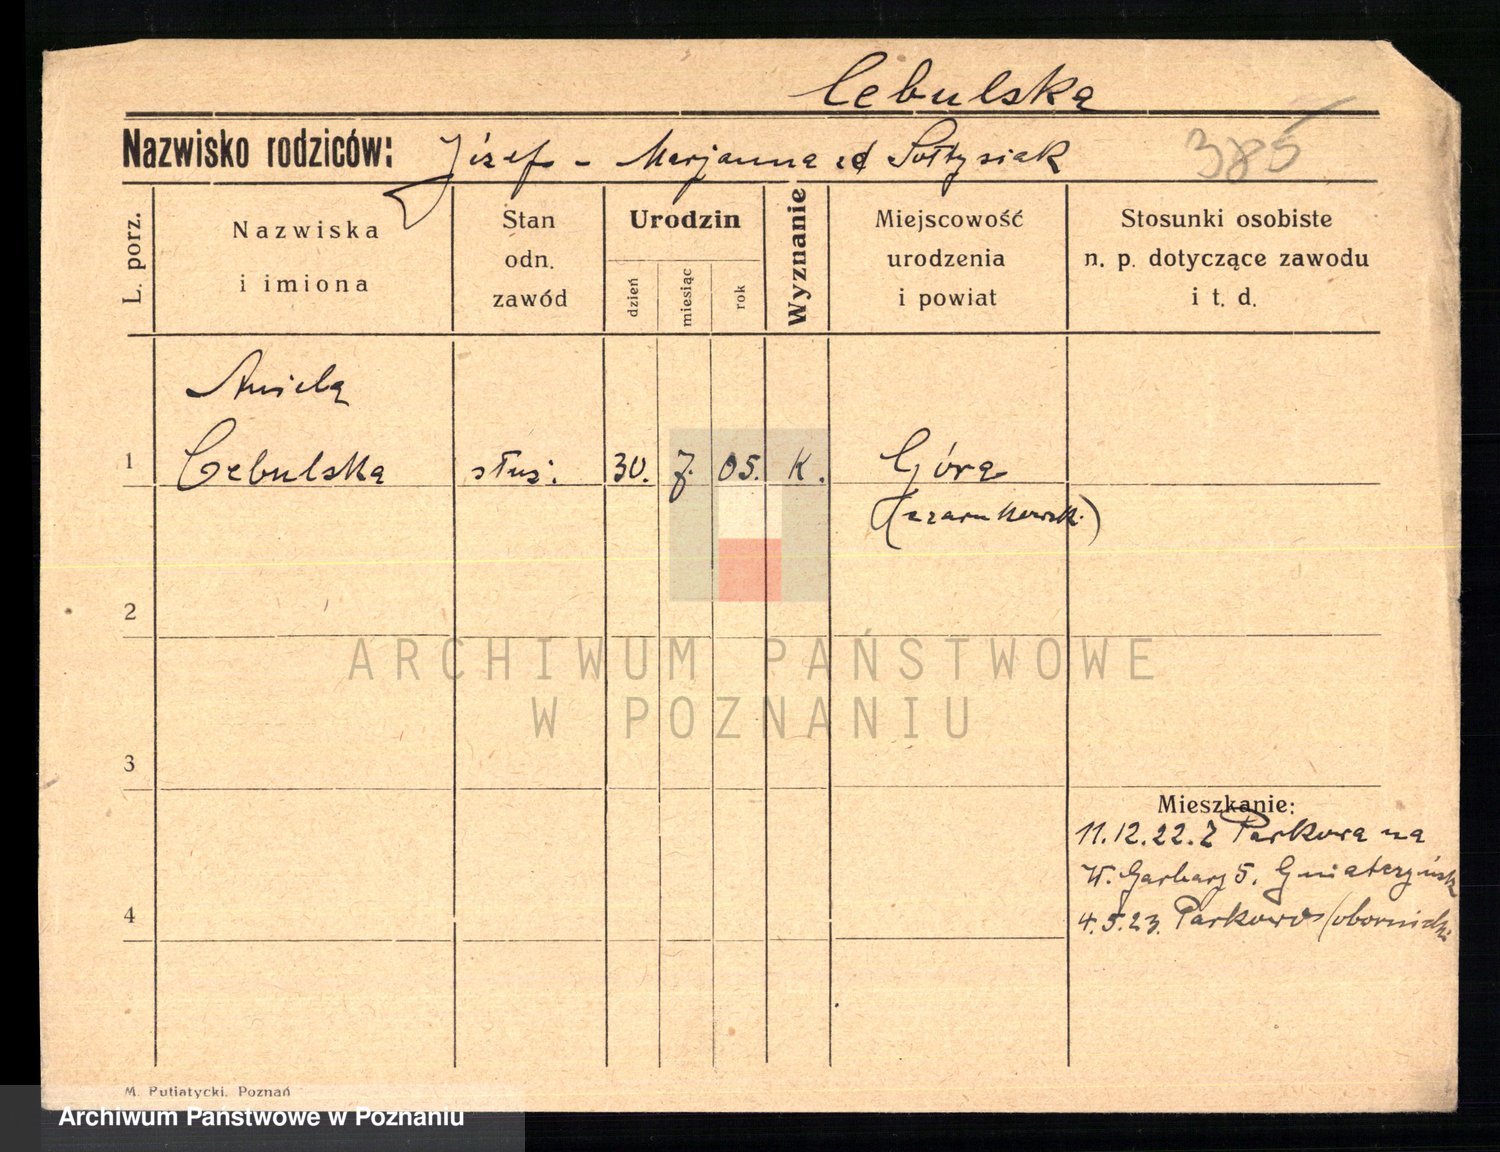 Cebulska
Nazwisko rodziców: Józef - Marjanna zd Sołtysiak 385
L. porz.
Nazwiska i imiona
Stan odn. zawód
Urodzin
dzień miesiąc rok
Wyznanie
Miejscowość urodzenia i powiat
Stosunki osobiste n. p. dotyczące zawodu i t. d.
Aniela
1 Cebulska służ. 30. 7. 05. K. Góra
(czarnkowsk.)
2
ARCHIWUM PAŃSTWOWE
W POZNANIU
3
Mieszkanie:
11.12.22. Z Parkowa na
W. Garbary 5. Gniatczyńsk
4
4.5.23. Parkowo (obornicki
M. Putiatycki, Poznań
Archiwum Państwowe w Poznaniu